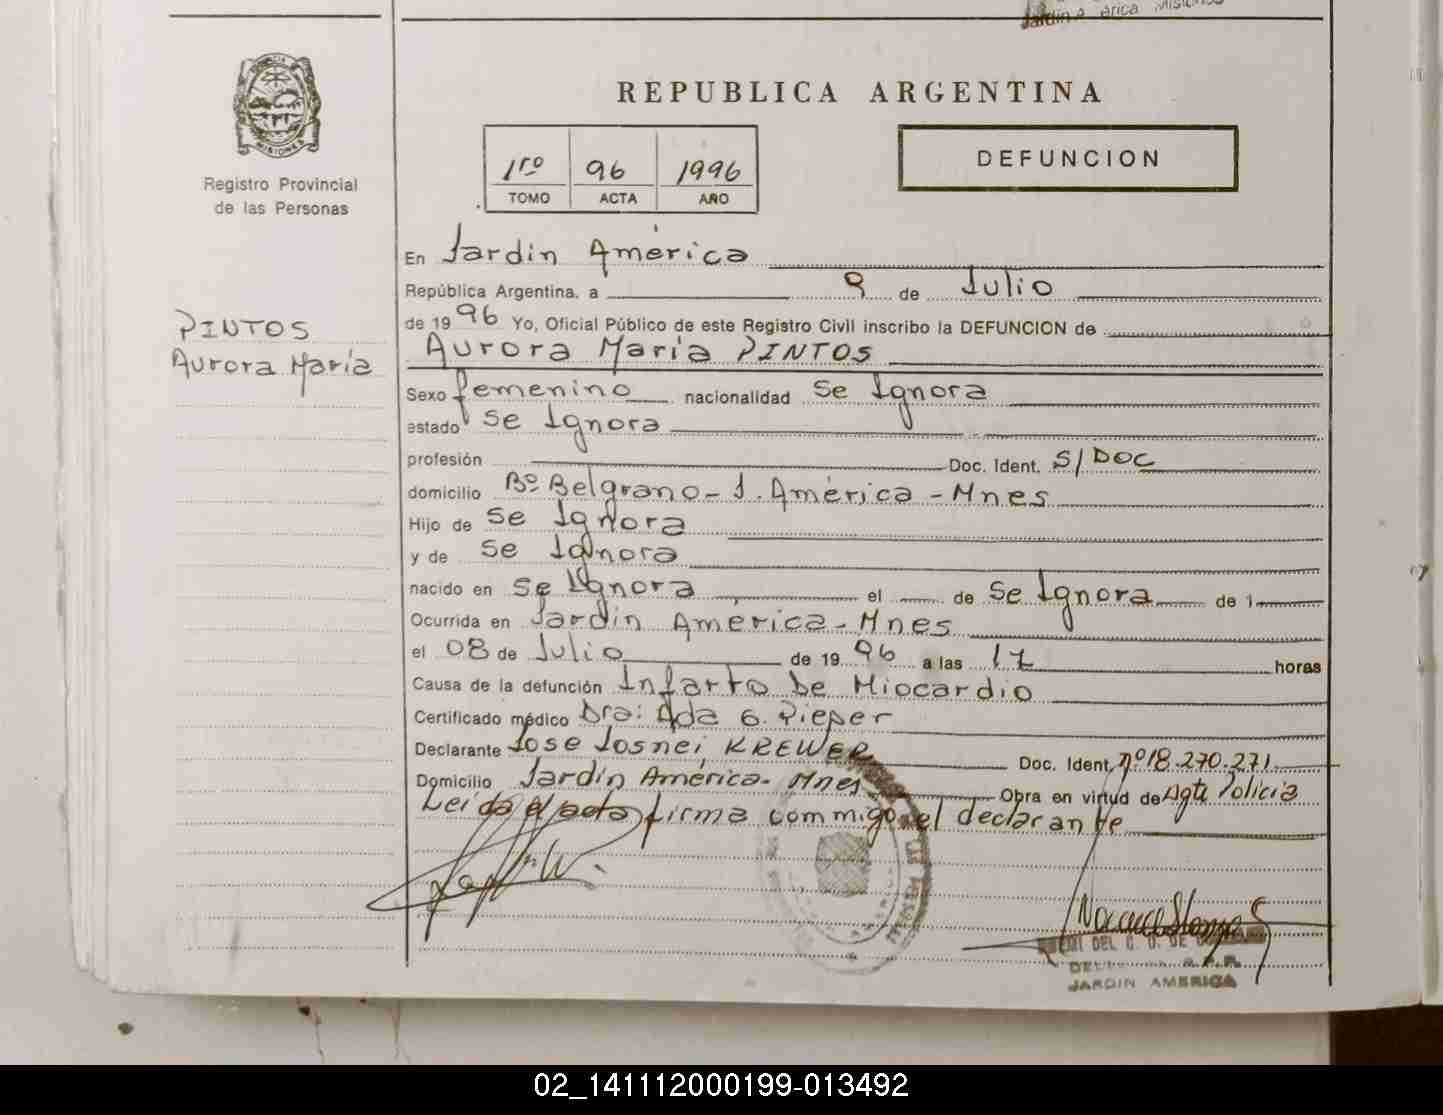 Jardin América Misiones
MISIONES
Registro Provincial
de las Personas
REPUBLICA ARGENTINA
1ro 96 1996
TOMO ACTA AÑO
DEFUNCION
PINTOS
Aurora María
En Jardin América
República Argentina, a 9 de Julio
de 1996 Yo, Oficial Público de este Registro Civil inscribo la DEFUNCION de
Aurora María PINTOS
Sexo femenino nacionalidad Se Ignora
estado Se Ignora
profesión Doc. Ident. S/DOC
domicilio Bº Belgrano - J. América - Mnes
Hijo de Se Ignora
y de Se Ignora
nacido en Se Ignora el de Se Ignora de 1
Ocurrida en Jardin América - Mnes
el 08 de Julio de 1996 a las 17 horas
Causa de la defunción Infarto De Miocardio
Certificado médico Dra: Ada G. Pieper
Declarante Jose Josnei KREWER Doc. Ident. nº 18.270.271
Domicilio Jardin América - Mnes Obra en virtud de Agte Policia
Leida el acta firma commigo el declarante
LAS PERSONAS
DEL C. D. DE
JARDIN AMERICA
02_141112000199-013492